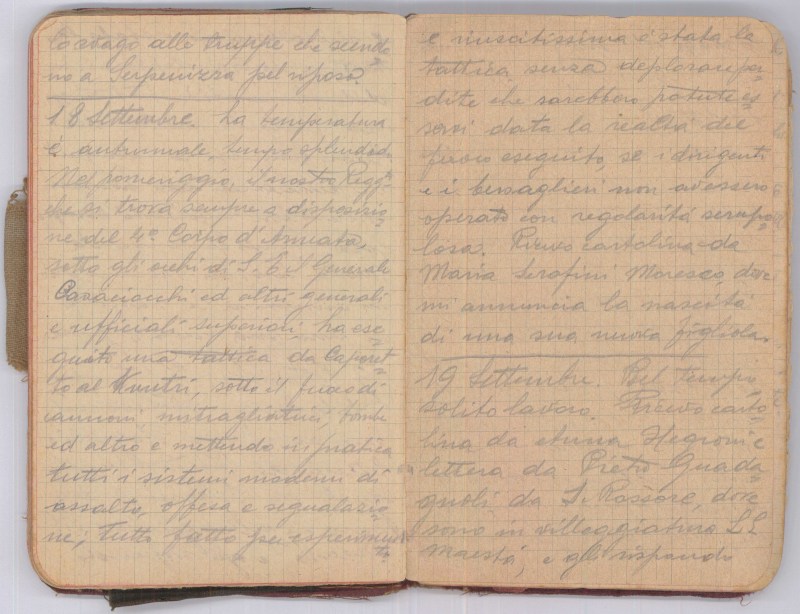 lo svago alle truppe che scende
no a Serpenizza pel riposo.
18 Settembre. La temperatura
è autunnale, tempo splendido
Nel pomeriggio, il nostro Regg.
che si trova sempre a disposizio
ne del 4º Corpo d'Armata,
sotto gli occhi di S. E. il Generale
Cavaciocchi ed altri generali
e ufficiali superiori, ha ese
guito una tattica da Caporet
to al Kuntri, sotto il fuoco di
cannoni mitragliatrici, bombe
ed altro e mettendo in pratica
tutti i sistemi moderni di
assalto, offesa e segnalazio
ne; Tutto fatto per esperimen
to
e riuscitissima è stata la
tattica, senza deplorare per
dite che sarebbero potute es
servi data la realtà del
fuoco eseguito, se i dirigenti
e i bersaglieri non avessero
operato con regolarità scrupo
losa. Ricevo cartolina da
Maria Serafini Moresco, dove
mi annuncia la nascita
di una sua nuova figliola.
19 Settembre. Bel tempo,
solito lavoro. Ricevo carto
lina da Anna Negroni e
lettera da Pietro Guada
gnoli da S. Rossore, dove
sono in villeggiatura LL
Maestà, e gli rispondo